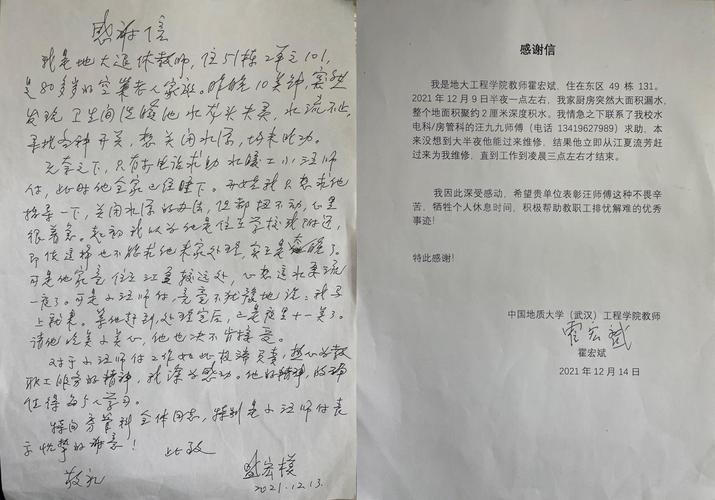 感谢信
我是地大退休教师，住51栋2单元101，
是80多岁的空巢老人家庭。昨晚10点钟，突然
发现卫生间洗脸池水龙头失灵，水流不止，
寻找各种开关，想关闭水源，均未成功。
无奈之下，只有打电话求助水暖工小汪师
付，此时他全家已经睡下。开始是我只想求他
指导一下，关闭水源的办法，但都扭不动，心里
很着急。起初我以为他是住在学校我附近，
即使这样也不能求他来家处理，实在是太晚了。
可是他家竟住江夏较远处，心想这水要流
一夜了。可是小汪师付，毫毫不犹豫地说：我马
上就来。等他赶到，处理完后，已是夜里十一点了。
请他吃点点心，他也决不肯接受。
对于小汪师付工作如此极端负责，热心为教
职工服务的精神，我深为感动。他的精神，的确
值得每个人学习。
特向房管科全体同志，特别是小汪师付表
示忱挚的谢意！
此致
敬礼
宏模
2021.12.13.
感谢信
我是地大工程学院教师霍宏斌，住在东区 49 栋 131。
2021 年 12 月 9 日半夜一点左右，我家厨房突然大面积漏水，
整个地面积聚约 2 厘米深度积水。我情急之下联系了我校水
电科/房管科的汪九九师傅（电话 13419627989）求助，本
来没想到大半夜他能过来维修，结果他立即从江夏流芳赶
过来为我维修，直到工作到凌晨三点左右才结束。
我因此深受感动，希望贵单位表彰汪师傅这种不畏辛
苦，牺牲个人休息时间，积极帮助教职工排忧解难的优秀
事迹！
特此感谢！
中国地质大学（武汉）工程学院教师
霍宏斌
霍宏斌
2021 年 12 月 14 日